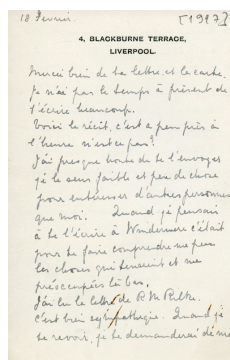 18 Fevrier. [1927]
4, BLACKBURNE TERRACE,
LIVERPOOL.
Merci bien de ta lettre, et la carte.
Je n'ai pas le temps à présent de
t'écrire beaucoup.
Voici le récit, c'est a peu près à
l'heure n'est ce pas?
J'ai presque honte de te l'envoyer
je le sens faible et peu de chose
pour intéresser d'autres personnes
que moi. Quand je pensais
à te l'écrire à Windermere c'était
pour te faire comprendre un peu
les choses qui tenaient et me
préoccupées là bas.
J'ai lu la lettre de R. M. Rilke.
c'est bien sympathique. Quand je
te revoir, je te demanderai de me